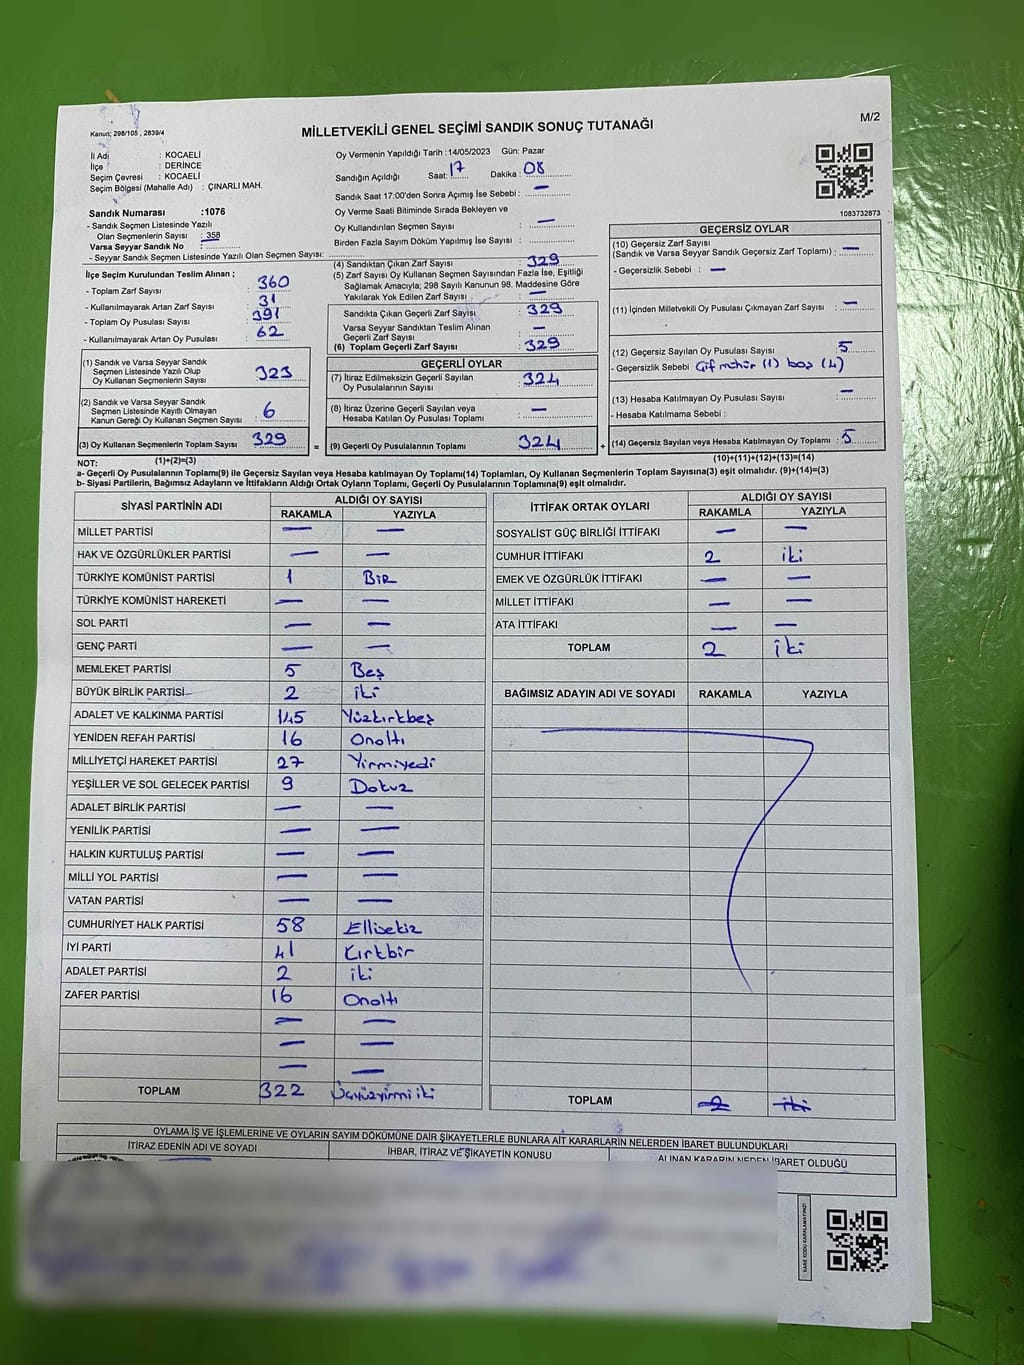 Kanun; 298/105 , 2839/4
MİLLETVEKİLİ GENEL SEÇİMİ SANDIK SONUÇ TUTANAĞI
M/2
İl Adı : KOCAELİ
İlçe : DERİNCE
Seçim Çevresi : KOCAELİ
Seçim Bölgesi (Mahalle Adı) : ÇINARLI MAH.
Sandık Numarası :1076
- Sandık Seçmen Listesinde Yazılı
Olan Seçmenlerin Sayısı : 358
Varsa Seyyar Sandık No :
- Seyyar Sandık Seçmen Listesinde Yazılı Olan Seçmen Sayısı:
Oy Vermenin Yapıldığı Tarih :14/05/2023 Gün: Pazar
Sandığın Açıldığı Saat: 17 Dakika : 08
Sandık Saat 17.00'den Sonra Açımış İse Sebebi : —
Oy Verme Saati Bitiminde Sırada Bekleyen ve
Oy Kullandırılan Seçmen Sayısı : —
Birden Fazla Sayım Döküm Yapılmış İse Sayısı :
1083732873
İlçe Seçim Kurulundan Teslim Alınan ;
- Toplam Zarf Sayısı : 360
- Kullanılmayarak Artan Zarf Sayısı : 31
- Toplam Oy Pusulası Sayısı : 391
- Kullanılmayarak Artan Oy Pusulası : 62
(1) Sandık ve Varsa Seyyar Sandık
Seçmen Listesinde Yazılı Olup
Oy Kullanan Seçmenlerin Sayısı : 323
(2) Sandık ve Varsa Seyyar Sandık
Seçmen Listesinde Kayıtlı Olmayan
Kanun Gereği Oy Kullanan Seçmen Sayısı : 6
(3) Oy Kullanan Seçmenlerin Toplam Sayısı : 329 =
(1)+(2)=(3)
(4) Sandıktan Çıkan Zarf Sayısı : 329
(5) Zarf Sayısı Oy Kullanan Seçmen Sayısından Fazla İse, Eşitliği
Sağlamak Amacıyla; 298 Sayılı Kanunun 98. Maddesine Göre
Yakılarak Yok Edilen Zarf Sayısı : —
Sandıkta Çıkan Geçerli Zarf Sayısı : 329
Varsa Seyyar Sandıktan Teslim Alınan
Geçerli Zarf Sayısı : —
(6) Toplam Geçerli Zarf Sayısı : 329
GEÇERLİ OYLAR
(7) İtiraz Edilmeksizin Geçerli Sayılan
Oy Pusulalarının Sayısı : 324
(8) İtiraz Üzerine Geçerli Sayılan veya
Hesaba Katılan Oy Pusulası Toplamı : —
(9) Geçerli Oy Pusulalarının Toplamı : 324 +
GEÇERSİZ OYLAR
(10) Geçersiz Zarf Sayısı
(Sandık ve Varsa Seyyar Sandık Geçersiz Zarf Toplamı) : —
- Geçersizlik Sebebi : —
(11) İçinden Milletvekili Oy Pusulası Çıkmayan Zarf Sayısı : —
(12) Geçersiz Sayılan Oy Pusulası Sayısı : 5
- Geçersizlik Sebebi : Çif mühür (1) boş (4)
(13) Hesaba Katılmayan Oy Pusulası Sayısı : —
- Hesaba Katılmama Sebebi :
(14) Geçersiz Sayılan veya Hesaba Katılmayan Oy Toplamı : 5
(10)+(11)+(12)+(13)=(14)
NOT:
a- Geçerli Oy Pusulalarının Toplamı(9) ile Geçersiz Sayılan veya Hesaba katılmayan Oy Toplamı(14) Toplamları, Oy Kullanan Seçmenlerin Toplam Sayısına(3) eşit olmalıdır. (9)+(14)=(3)
b- Siyasi Partilerin, Bağımsız Adayların ve İttifakların Aldığı Ortak Oyların Toplamı, Geçerli Oy Pusulalarının Toplamına(9) eşit olmalıdır.
SİYASİ PARTİNİN ADI ALDIĞI OY SAYISI
RAKAMLA YAZIYLA
MİLLET PARTİSİ — —
HAK VE ÖZGÜRLÜKLER PARTİSİ — —
TÜRKİYE KOMÜNİST PARTİSİ 1 Bir
TÜRKİYE KOMÜNİST HAREKETİ — —
SOL PARTİ — —
GENÇ PARTİ — —
MEMLEKET PARTİSİ 5 Beş
BÜYÜK BİRLİK PARTİSİ 2 iki
ADALET VE KALKINMA PARTİSİ 145 Yüzkırkbeş
YENİDEN REFAH PARTİSİ 16 Onaltı
MİLLİYETÇİ HAREKET PARTİSİ 27 Yirmiyedi
YEŞİLLER VE SOL GELECEK PARTİSİ 9 Dokuz
ADALET BİRLİK PARTİSİ — —
YENİLİK PARTİSİ — —
HALKIN KURTULUŞ PARTİSİ — —
MİLLİ YOL PARTİSİ — —
VATAN PARTİSİ — —
CUMHURİYET HALK PARTİSİ 58 Ellisekiz
İYİ PARTİ 41 Kırkbir
ADALET PARTİSİ 2 iki
ZAFER PARTİSİ 16 Onaltı
— —
— —
— —
TOPLAM 322 Üçyüzyirmi iki
İTTİFAK ORTAK OYLARI ALDIĞI OY SAYISI
RAKAMLA YAZIYLA
SOSYALİST GÜÇ BİRLİĞİ İTTİFAKI — —
CUMHUR İTTİFAKI 2 iki
EMEK VE ÖZGÜRLÜK İTTİFAKI — —
MİLLET İTTİFAKI — —
ATA İTTİFAKI — —
TOPLAM 2 iki
BAĞIMSIZ ADAYIN ADI VE SOYADI RAKAMLA YAZIYLA
TOPLAM 2 iki
OYLAMA İŞ VE İŞLEMLERİNE VE OYLARIN SAYIM DÖKÜMÜNE DAİR ŞİKAYETLERLE BUNLARA AİT KARARLARIN NELERDEN İBARET BULUNDUKLARI
İTİRAZ EDENİN ADI VE SOYADI İHBAR, İTİRAZ VE ŞİKAYETİN KONUSU ALINAN KARARIN NEDEN İBARET OLDUĞU
KARE KODU KARALAMAYINIZ!